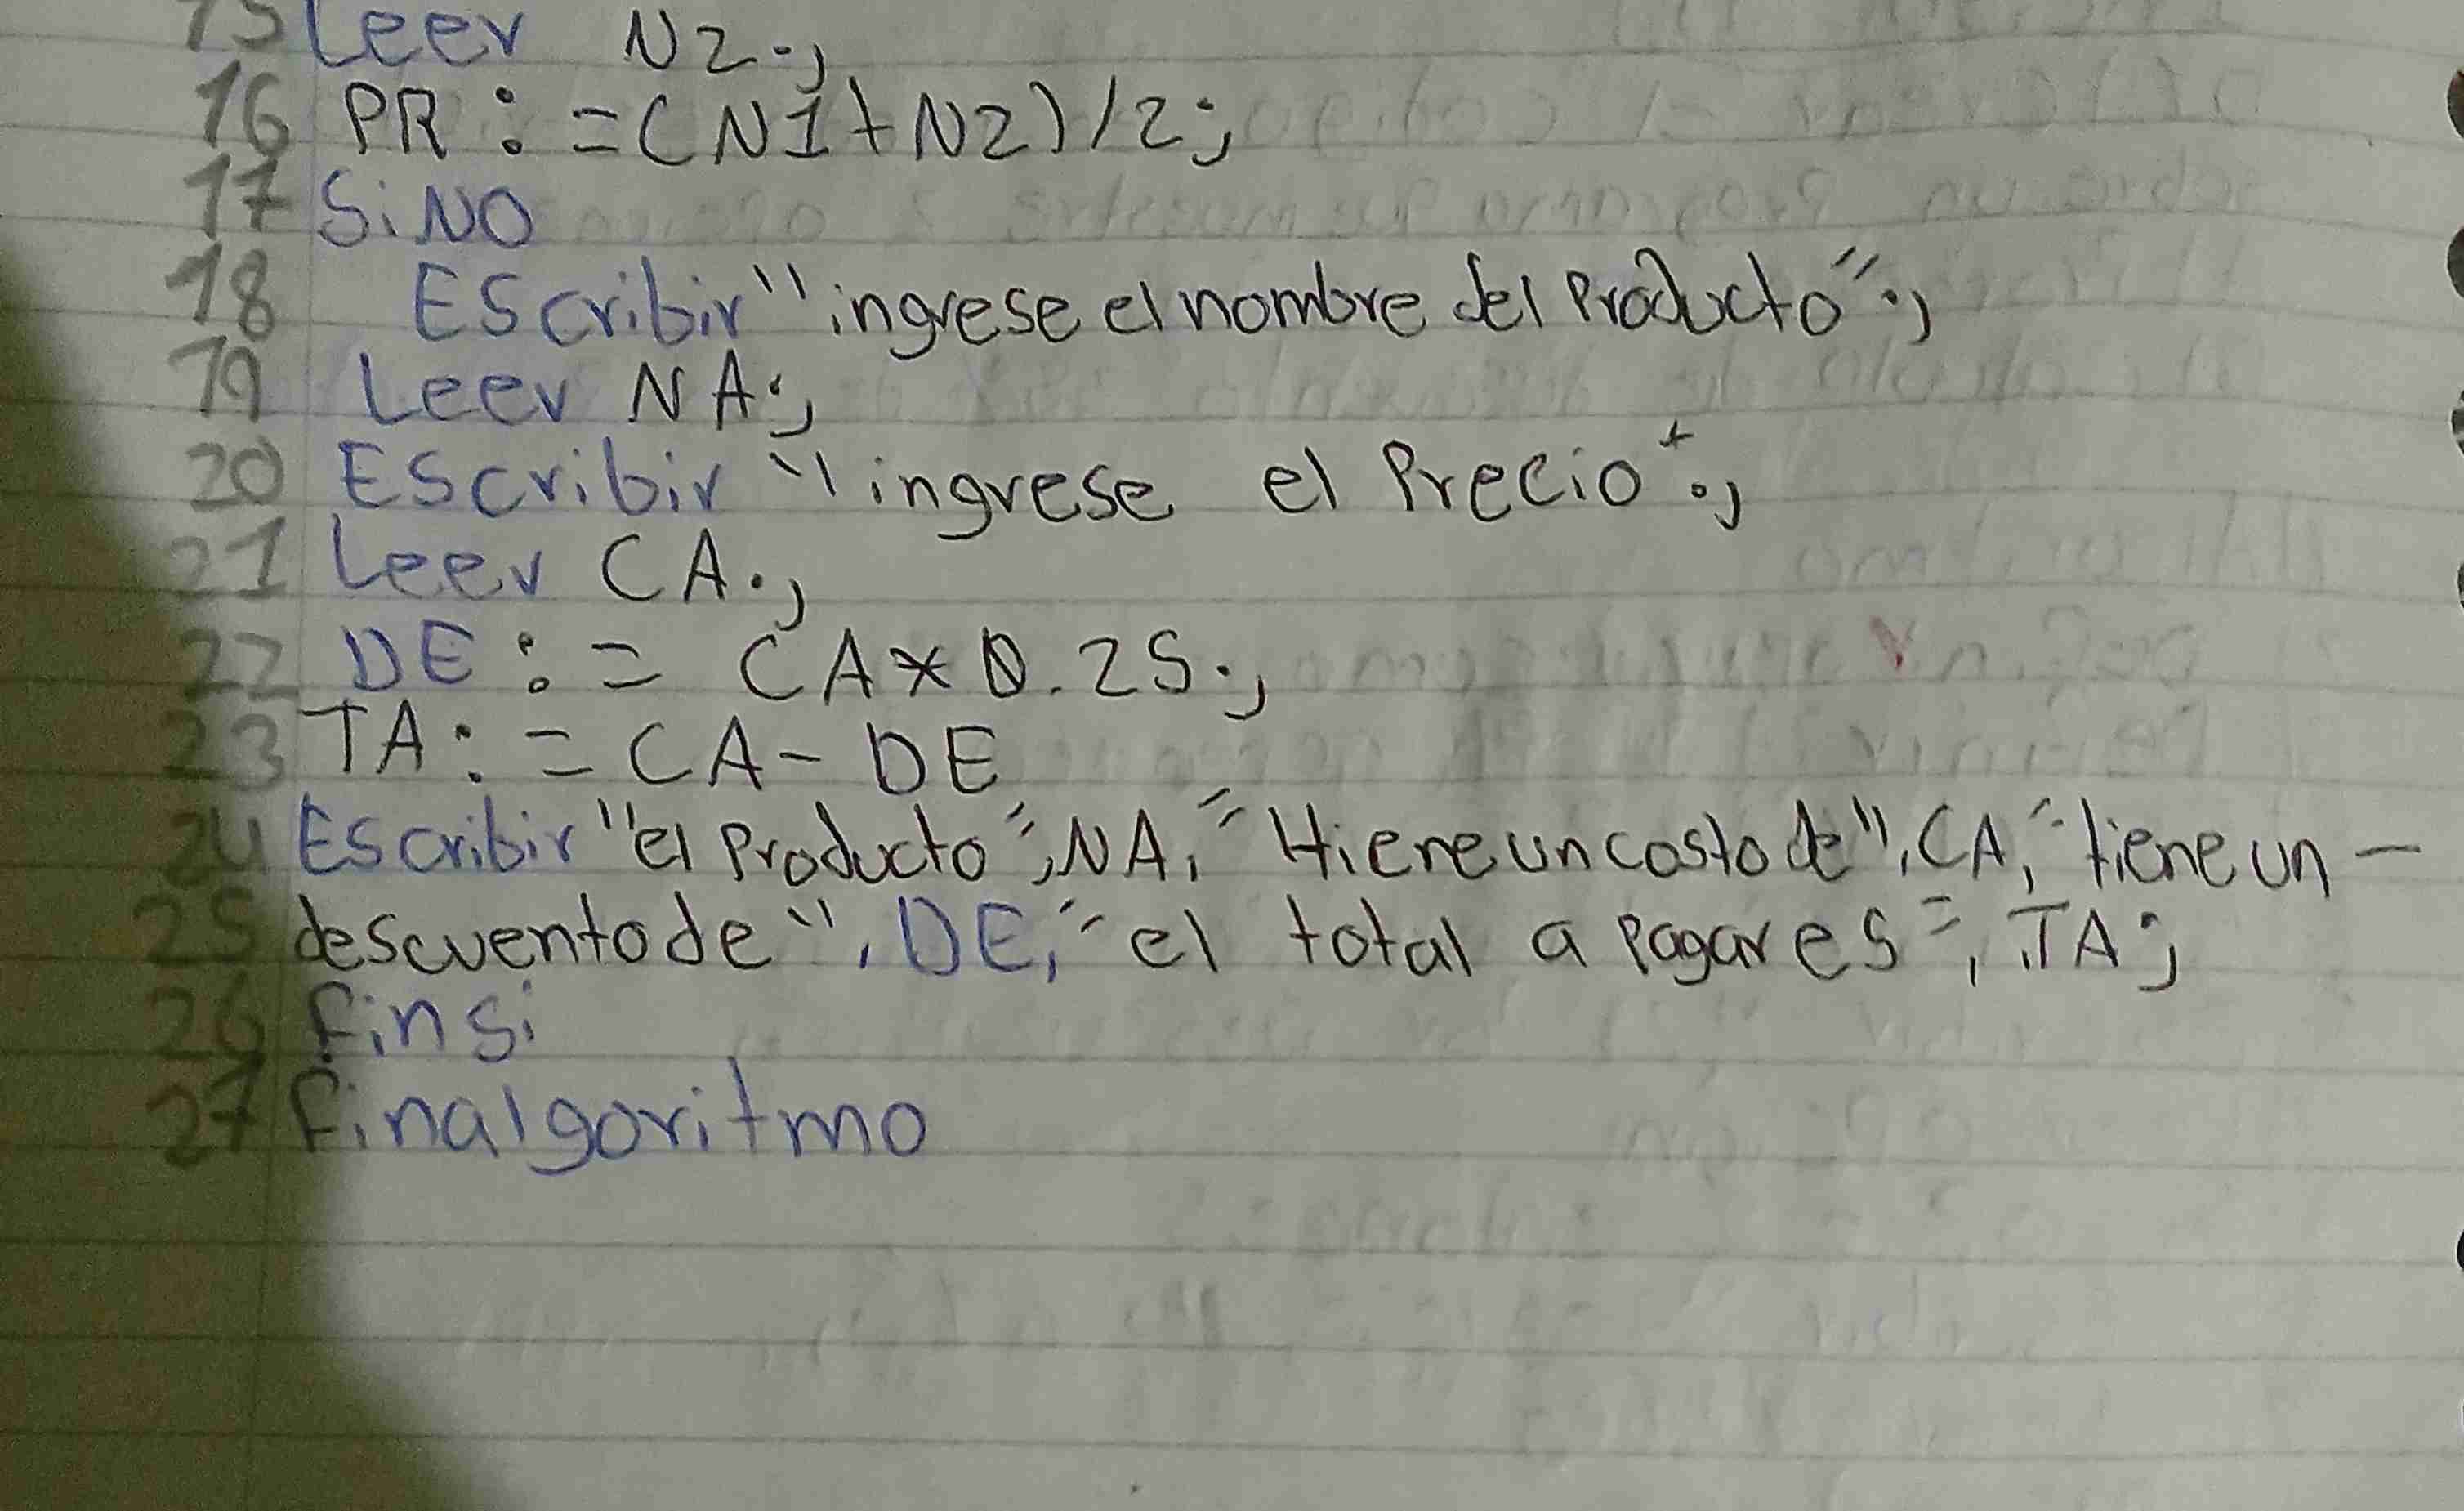 15 Leer N2;
16 PR := (N1+N2)/2;
17 SiNO
18 Escribir "ingrese el nombre del Producto";
19 Leer NA;
20 Escribir "ingrese el Precio";
21 Leer CA;
22 DE := CA*0.25;
23 TA := CA - DE
24 Escribir "el Producto", NA, "tiene un costo de", CA, "tiene un -
25 descuento de", DE, "el total a Pagar es", TA;
26 finsi
27 finalgoritmo